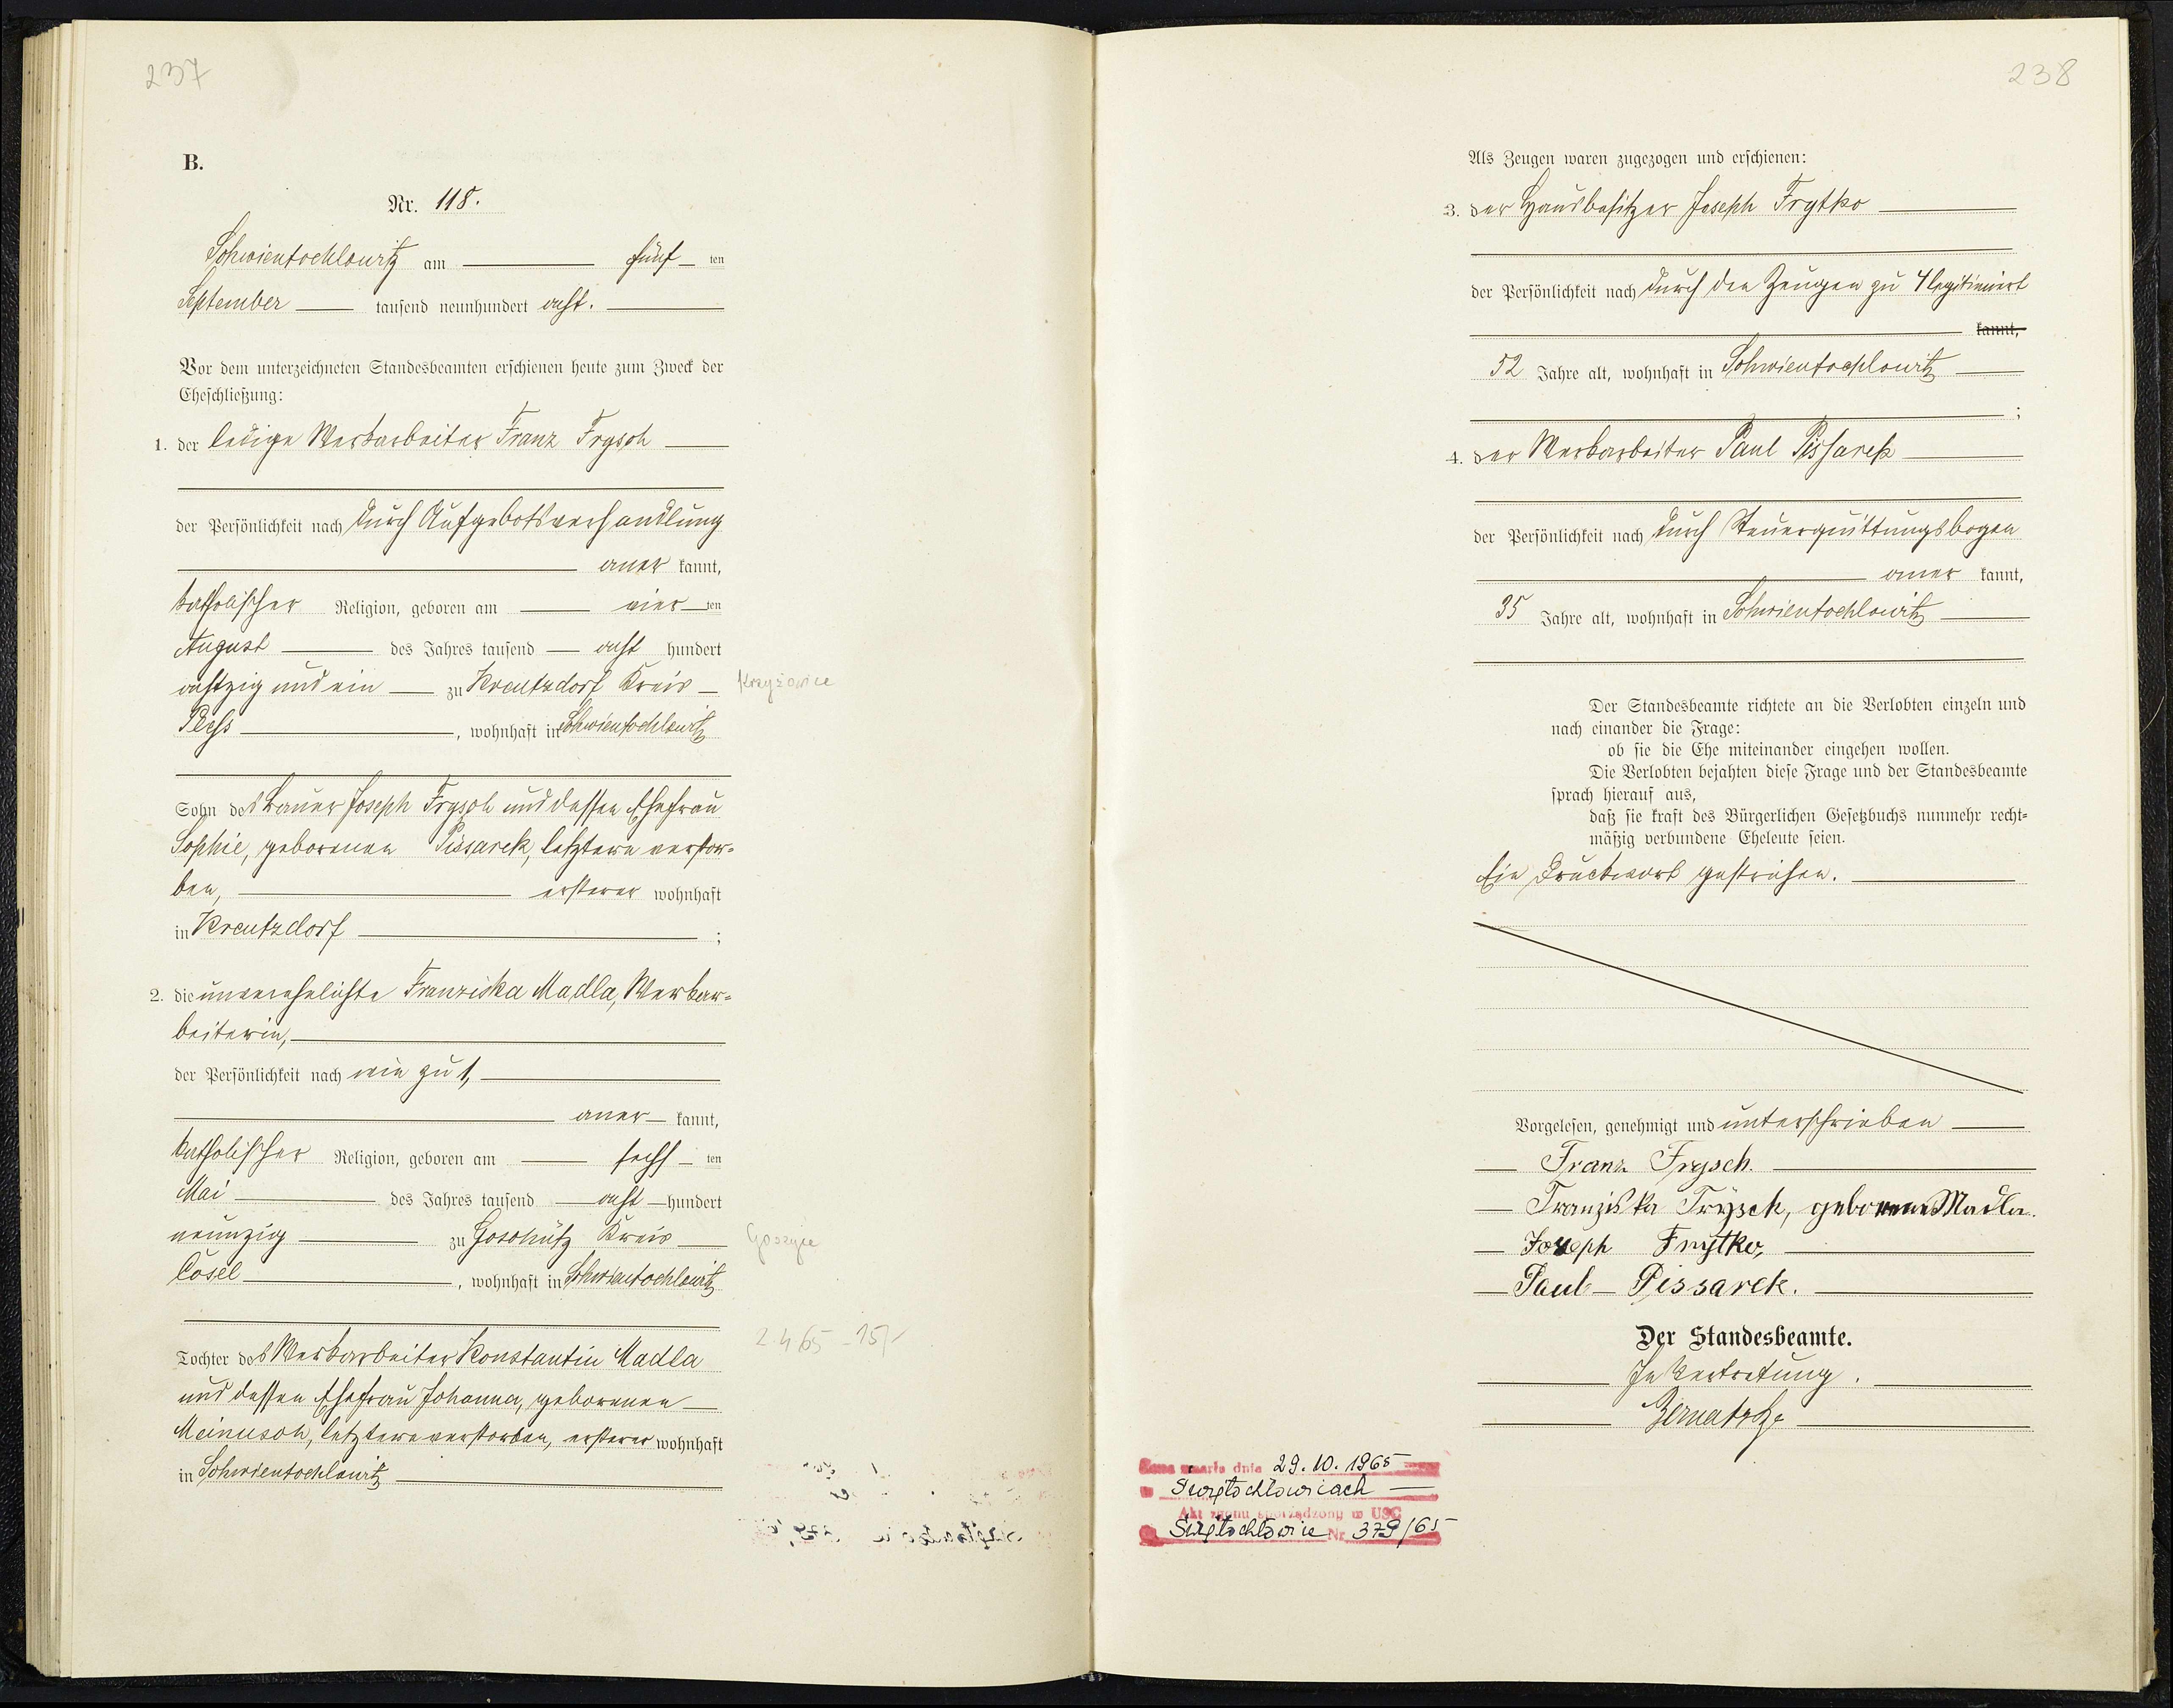 237
B.
Nr. 118.
Schwientochlowitz am fünf ten
September tausend neunhundert acht.
Vor dem unterzeichneten Standesbeamten erschienen heute zum Zweck der
Eheschließung:
1. der ledige Werkarbeiter Franz Frysch
der Persönlichkeit nach durch Aufgebotsverhandlung
aner kannt,
katholischer Religion, geboren am vier ten
August des Jahres tausend acht hundert
achtzig und ein zu Kreutzdorf Kreis
Krzyżowice
Pless, wohnhaft in Schwientochlowitz
Sohn des Bauer Joseph Frysch und dessen Ehefrau
Sophie, geborenen Pissarek, letztere verstor=
ben, ersterer wohnhaft
in Kreutzdorf ;
2. die unverehelichte Franziska Madla, Werkar=
beiterin,
der Persönlichkeit nach wie zu 1,
aner kannt,
katholischer Religion, geboren am sechs ten
Mai des Jahres tausend acht hundert
neunzig zu Goschütz Kreis
Cosel, wohnhaft in Schwientochlowitz
2.4.65 - 15/-
Tochter des Werkarbeiter Konstantin Madla
und dessen Ehefrau Johanna, geborenen
Meinusch, letztere verstorben, ersterer wohnhaft
in Schwientochlowitz
238
Als Zeugen waren zugezogen und erschienen:
3. der Hausbesitzer Joseph Frytko
der Persönlichkeit nach durch den Zeugen zu 4 legitimiert
kannt,
52 Jahre alt, wohnhaft in Schwientochlowitz
;
4. der Werkarbeiter Paul Pissarek
der Persönlichkeit nach durch Steuerquittungsbogen
aner kannt,
35 Jahre alt, wohnhaft in Schwientochlowitz
Der Standesbeamte richtete an die Verlobten einzeln und
nach einander die Frage:
ob sie die Ehe miteinander eingehen wollen.
Die Verlobten bejahten diese Frage und der Standesbeamte
sprach hierauf aus,
daß sie kraft des Bürgerlichen Gesetzbuchs nunmehr recht=
mäßig verbundene Eheleute seien.
Ein Druckwort gestrichen.
Vorgelesen, genehmigt und unterschrieben
Franz Frysch.
Franziska Frysch, geborene Madla.
Joseph Frytko,
Paul Pissarek.
Der Standesbeamte.
In Vertretung.
zmarła dnia 29.10.1965
Świętochłowicach
Akt zgonu sporządzony w USC
Świętochłowice Nr 379/65